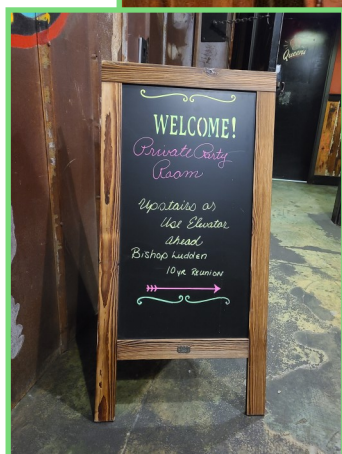 Queens
WELCOME!
Private Party
Room
Upstairs or
Use Elevator
ahead
Bishop Ludden
10 yr Reunion